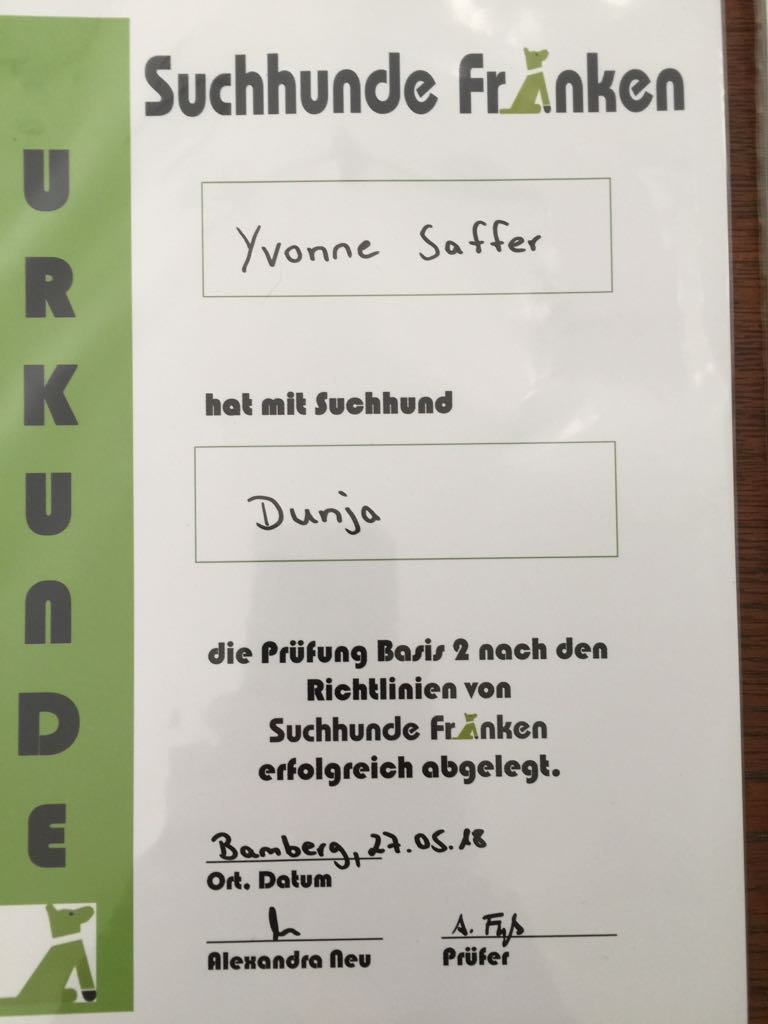 Suchhunde Franken
URKUNDE
Yvonne Saffer
hat mit Suchhund
Dunja
die Prüfung Basis 2 nach den
Richtlinien von
Suchhunde Franken
erfolgreich abgelegt.
Bamberg, 27.05.18
Ort. Datum
A.
Alexandra Neu Prüfer